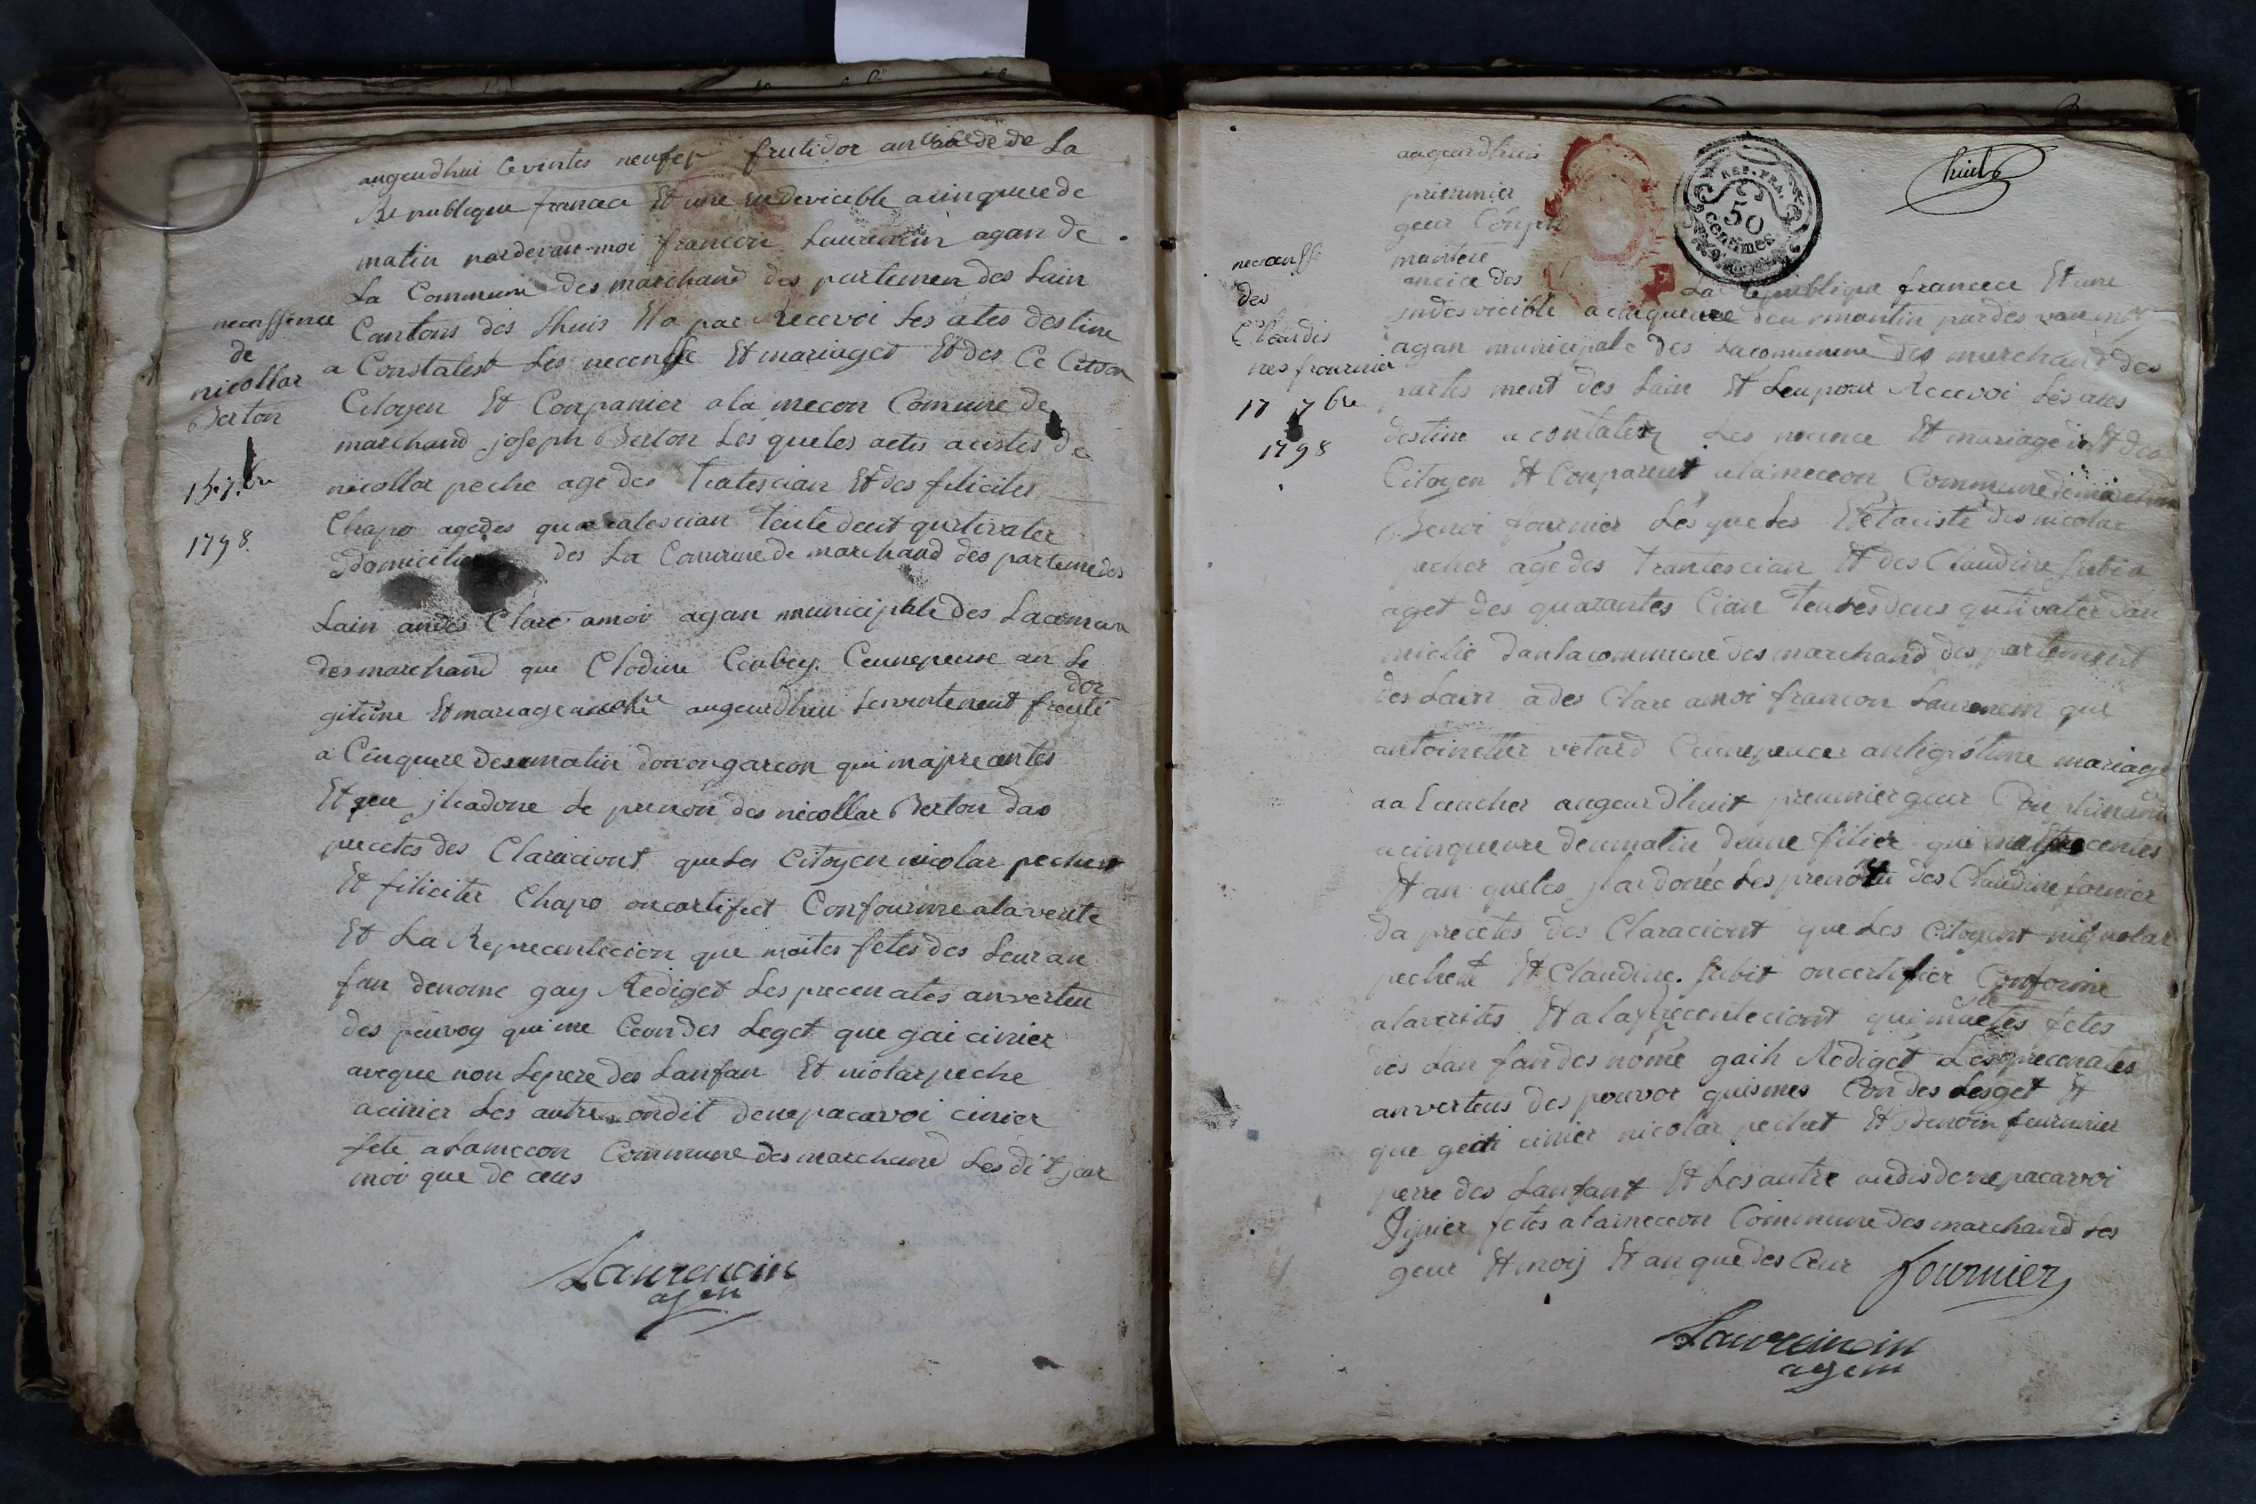 augeudhui le vintes neufs frutidor an de de La
Republique france Et une indevicible a cinqueure de
matin pardevan moi francoii Laurencin agan de
La Commune des marchand des partemen des Lain
Cantons des Et a par Recevoi Les ates destine
a Constalest Les necensse Et mariaget Et des Ce Citoen
Citoyen Et Conpanier ala mecon Comune de
marchand joseph Berton Les queles actis acistes de
nicollar peche age des Tratescian Et des filicites
Chapo agedes quaratescian Teute deut qultivater
Domicilie des La Comune de marchand des parteme des
Lain andes Clare amoi agan municipale des Lacomun
des marchand que Clodine Ceunepeuse an Le
gitime Et mariage augeurdhui Levinteneuf frouti
dor
a Cinqueure des matin donongarcon qui mapre antes
Et que jleadone Le prenon des nicollar Berton dao
precetes des Claraciont queles Citoyen nicolar pechest
Et filicites Chapo oncartifiet Confourme alaverite
Et La Reprecentecion que maites fetes des Leur an
fan denome gay Rediget Les precenates anverteu
des pouvoy qui me Condes Leget que gai cinier
aveque non Lepere des Lanfan Et nicolar peche
acinier Les autre ondit denepacavoi cinier
fete alamecon Commune des marchand Les dit jour
moi que de ceus
Laurencin
agen
necenssence
de
nicollar
Berton
15 7bre
1798
huit
REP. FRA.
50
Centimes
augeurdhui
priemmier
geur Conpli
mantere
ancice des
La republique francece Et une
indesvicible a cinqueure deu mantin pardes van moy
agan municipale des Lacommune des marchand des
partes ment des Lain Et Leu pour Recevoi Les ates
destine a contalest Les necence Et mariage Et des
Citoyen Et Conparent alamecon Commune de marchand
Benoi fournier Les queles Et etaciste des nicolar
pecher age des Trantescian Et des Claudine Subit
aget des quarantes Cian Teutesdeus qultivater dan
micilie danlacommune des marchand des partement
des Lain a des Clare amoi francon Laurencin que
antoinetter vetard Ceunepeuce anligistime mariage
aa Coucher augeurdhuit premmier geur Conplimant
acinqueure deumatin deune filier qui maprecentes
Et an queles jlardonée Les prenom des Claudine fornier
da precetes des Claraciont que Les Citoyent nicolar
pechent Et Claudine Subit oncertifier Conforme
alaverites Et alaprecenteciont qui maites fetes
des Lan fan des nomé gaih Rediget Les precenates
anverteus des pouvoe quismes Con des Lesget Et
que geai cinier nicolar pechet Et Benoin fournier
perre des Lanfant Et Lesautre ondis denepacavoi
Sinier fetes alamecon Commune des marchand Les
geur Et mois Et an que des Ceur fournier
Laurencin
agen
necenss
des
Claudis
nes fournier
17 7bre
1798